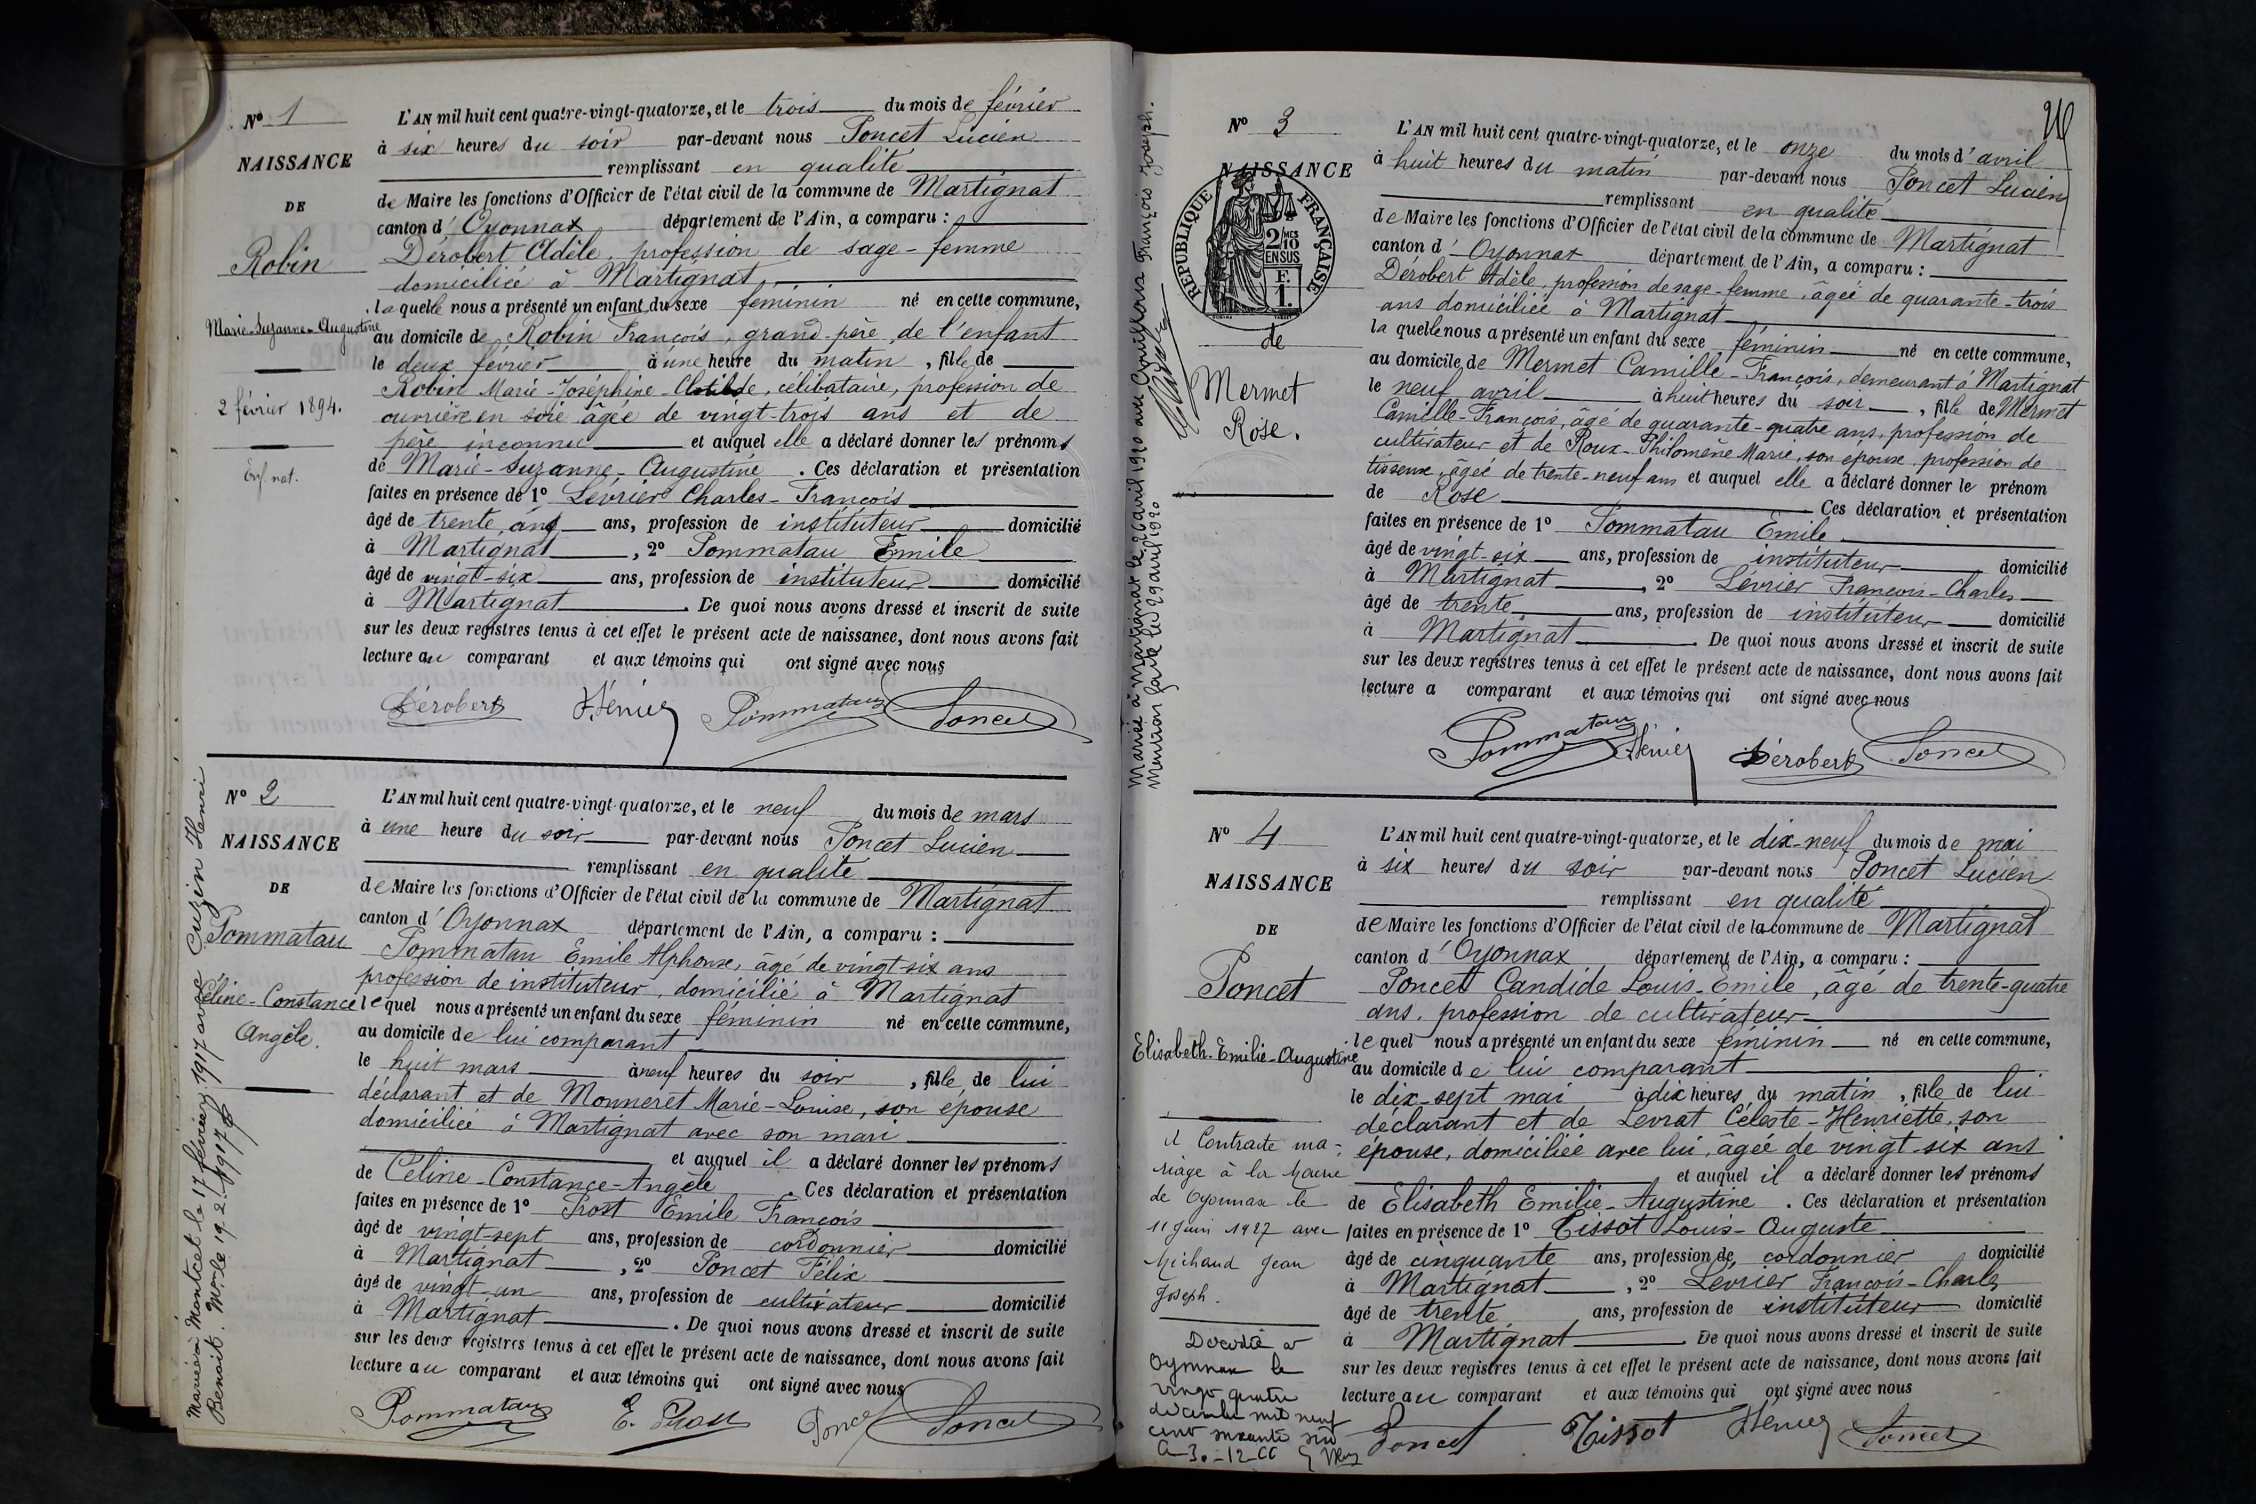 N° 1
NAISSANCE
DE
Robin
Marie-Suzanne-Augustine
2 février 1894.
Enf. nat.
L'AN mil huit cent quatre-vingt-quatorze, et le trois du mois de février
à six heures du soir par-devant nous Poncet Lucien
remplissant en qualité
de Maire les fonctions d'Officier de l'état civil de la commune de Martignat
canton d'Oyonnax département de l'Ain, a comparu :
Dérobert Adèle, profession de sage-femme
domiciliée à Martignat
laquelle nous a présenté un enfant du sexe féminin né en cette commune,
au domicile de Robin François, grand père de l'enfant
le deux février à une heure du matin, fille de
Robin Marie-Joséphine-Clotilde, célibataire, profession de
ouvrière en soie âgée de vingt-trois ans et de
père inconnu et auquel elle a déclaré donner les prénoms
de Marie-Suzanne-Augustine. Ces déclaration et présentation
faites en présence de 1° Lévrier Charles-François
âgé de trente ans ans, profession de instituteur domicilié
à Martignat, 2° Pommatau Emile
âgé de vingt-six ans, profession de instituteur domicilié
à Martignat. De quoi nous avons dressé et inscrit de suite
sur les deux registres tenus à cet effet le présent acte de naissance, dont nous avons fait
lecture au comparant et aux témoins qui ont signé avec nous
Dérobert Pommatau Poncet
N° 2
NAISSANCE
DE
Pommatau
Céline-Constance
Angèle.
Mariée à Montcet le 17 février 1917 avec Cuzin Henri
Benoit. Mon le 19.2.1917
L'AN mil huit cent quatre-vingt-quatorze, et le neuf du mois de mars
à une heure du soir par-devant nous Poncet Lucien
remplissant en qualité
de Maire les fonctions d'Officier de l'état civil de la commune de Martignat
canton d'Oyonnax département de l'Ain, a comparu :
Pommatau Emile Alphonse, âgé de vingt-six ans
profession de instituteur, domicilié à Martignat
lequel nous a présenté un enfant du sexe féminin né en cette commune,
au domicile de lui comparant
le huit mars à neuf heures du soir, fille de lui
déclarant et de Monneret Marie-Louise, son épouse
domiciliée à Martignat avec son mari
et auquel il a déclaré donner les prénoms
de Céline-Constance-Angèle. Ces déclaration et présentation
faites en présence de 1° Prost Emile François
âgé de vingt-sept ans, profession de cordonnier domicilié
à Martignat, 2° Poncet Félix
âgé de vingt-un ans, profession de cultivateur domicilié
à Martignat. De quoi nous avons dressé et inscrit de suite
sur les deux registres tenus à cet effet le présent acte de naissance, dont nous avons fait
lecture au comparant et aux témoins qui ont signé avec nous
Pommatau E. Prost Poncet Poncet
N° 3
NAISSANCE
RÉPUBLIQUE FRANÇAISE
2/10 MES
EN SUS
F.
1.
de
Mermet
Rose.
Mariée à Martignat le 26 avril 1920 avec François Joseph.
Mention faite le 29 avril 1920
L'AN mil huit cent quatre-vingt-quatorze, et le onze du mois d'avril
à huit heures du matin par-devant nous Poncet Lucien
remplissant en qualité
de Maire les fonctions d'Officier de l'état civil de la commune de Martignat
canton d'Oyonnax département de l'Ain, a comparu :
Dérobert Adèle, profession de sage-femme, âgée de quarante-trois
ans domiciliée à Martignat
laquelle nous a présenté un enfant du sexe féminin né en cette commune,
au domicile de Mermet Camille-François, demeurant à Martignat
le neuf avril à huit heures du soir, fille de Mermet
Camille-François, âgé de quarante-quatre ans, profession de
cultivateur et de Roux-Philomène Marie, son épouse, profession de
tisseuse, âgée de trente-neuf ans et auquel elle a déclaré donner le prénom
de Rose Ces déclaration et présentation
faites en présence de 1° Pommatau Emile
âgé de vingt-six ans, profession de instituteur domicilié
à Martignat, 2° Lévrier François-Charles
âgé de trente ans, profession de instituteur domicilié
à Martignat. De quoi nous avons dressé et inscrit de suite
sur les deux registres tenus à cet effet le présent acte de naissance, dont nous avons fait
lecture a comparant et aux témoins qui ont signé avec nous
Pommatau Dérobert Poncet
N° 4
NAISSANCE
DE
Poncet
Elisabeth-Emilie-Augustine
A Contracté ma-
riage à la Mairie
de Oyonnax le
11 Juin 1927 avec
Michaud Jean
Joseph.
Décédée à
Oyonnax le
vingt quatre
décembre mil neuf
cent soixante six
L'AN mil huit cent quatre-vingt-quatorze, et le dix-neuf du mois de mai
à six heures du soir par-devant nous Poncet Lucien
remplissant en qualité
de Maire les fonctions d'Officier de l'état civil de la commune de Martignat
canton d'Oyonnax département de l'Ain, a comparu :
Poncet Candide Louis-Emile, âgé de trente-quatre
ans, profession de cultivateur
lequel nous a présenté un enfant du sexe féminin né en cette commune,
au domicile de lui comparant
le dix-sept mai à dix heures du matin, fille de lui
déclarant et de Levrat Céleste-Henriette, son
épouse, domiciliée avec lui, âgée de vingt-six ans
et auquel il a déclaré donner les prénoms
de Elisabeth Emilie-Augustine. Ces déclaration et présentation
faites en présence de 1° Tissot Louis-Auguste
âgé de cinquante ans, profession de cordonnier domicilié
à Martignat, 2° Lévrier François-Charles
âgé de trente ans, profession de instituteur domicilié
à Martignat De quoi nous avons dressé et inscrit de suite
sur les deux registres tenus à cet effet le présent acte de naissance, dont nous avons fait
lecture au comparant et aux témoins qui ont signé avec nous
Poncet Tissot Poncet